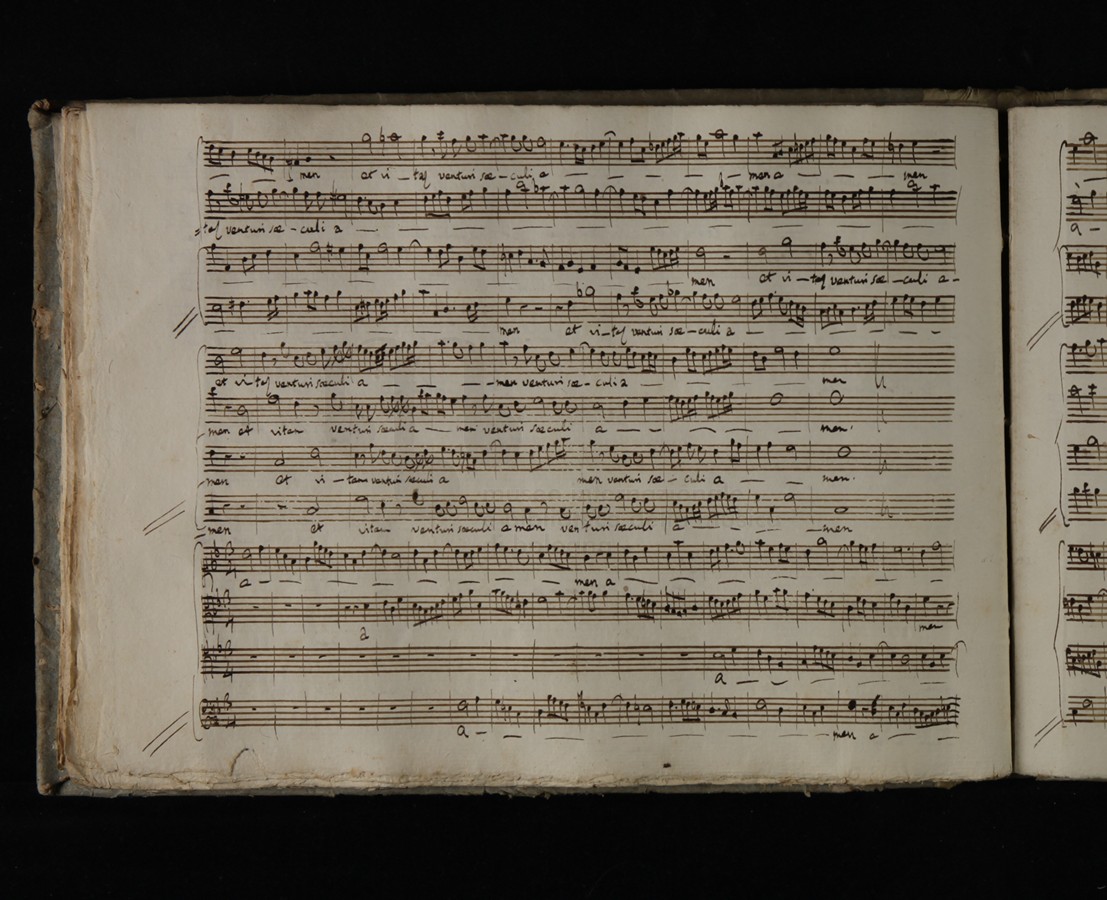 men et vi – taſ venturi sæ – culi a men a men
taſ venturi sæ – culi a
men et vi – taſ venturi sæ – culi a –
men et vi – taſ venturi sæ – culi a
et vi taſ venturi sæculi a – men venturi sæ – culi a men
men et vitam venturi sæculi a men venturi sæculi a men.
men et vi – tam venturi sæculi a men venturi sæ – culi a men.
men et vitam venturi sæculi amen venturi sæculi a men
a men a
a men
a
a – men a